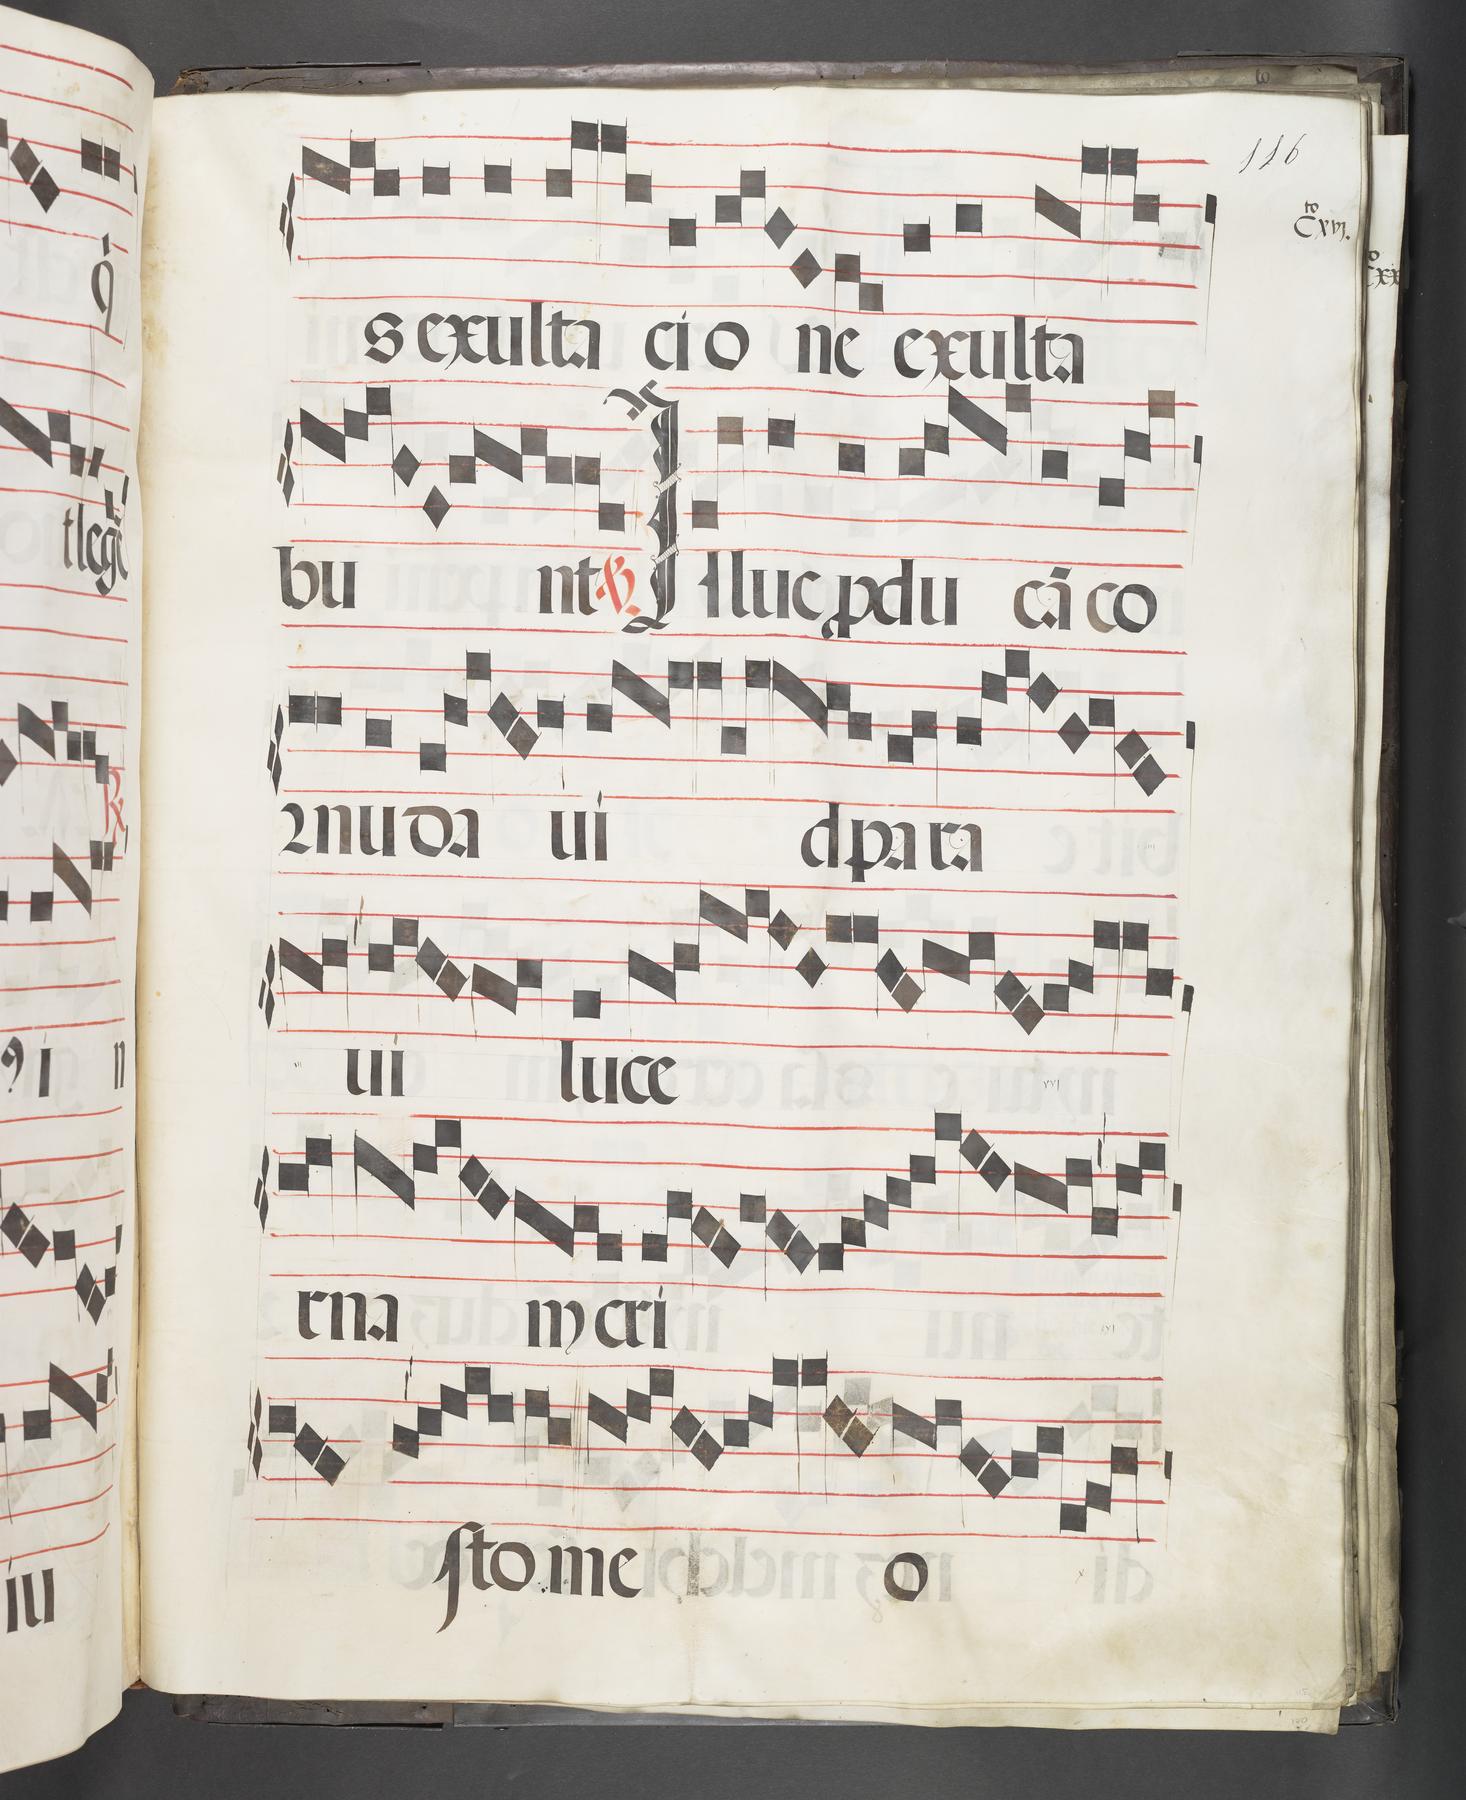 116
to
Cxvj.
s exulta cio ne exulta
bu nt ℟ Illuc ꝓdu cā co
ꝛnu da ui d para
ui luce
rna m xpi
sto me o
q̇
t lege
℟
ꝯ i n
iu